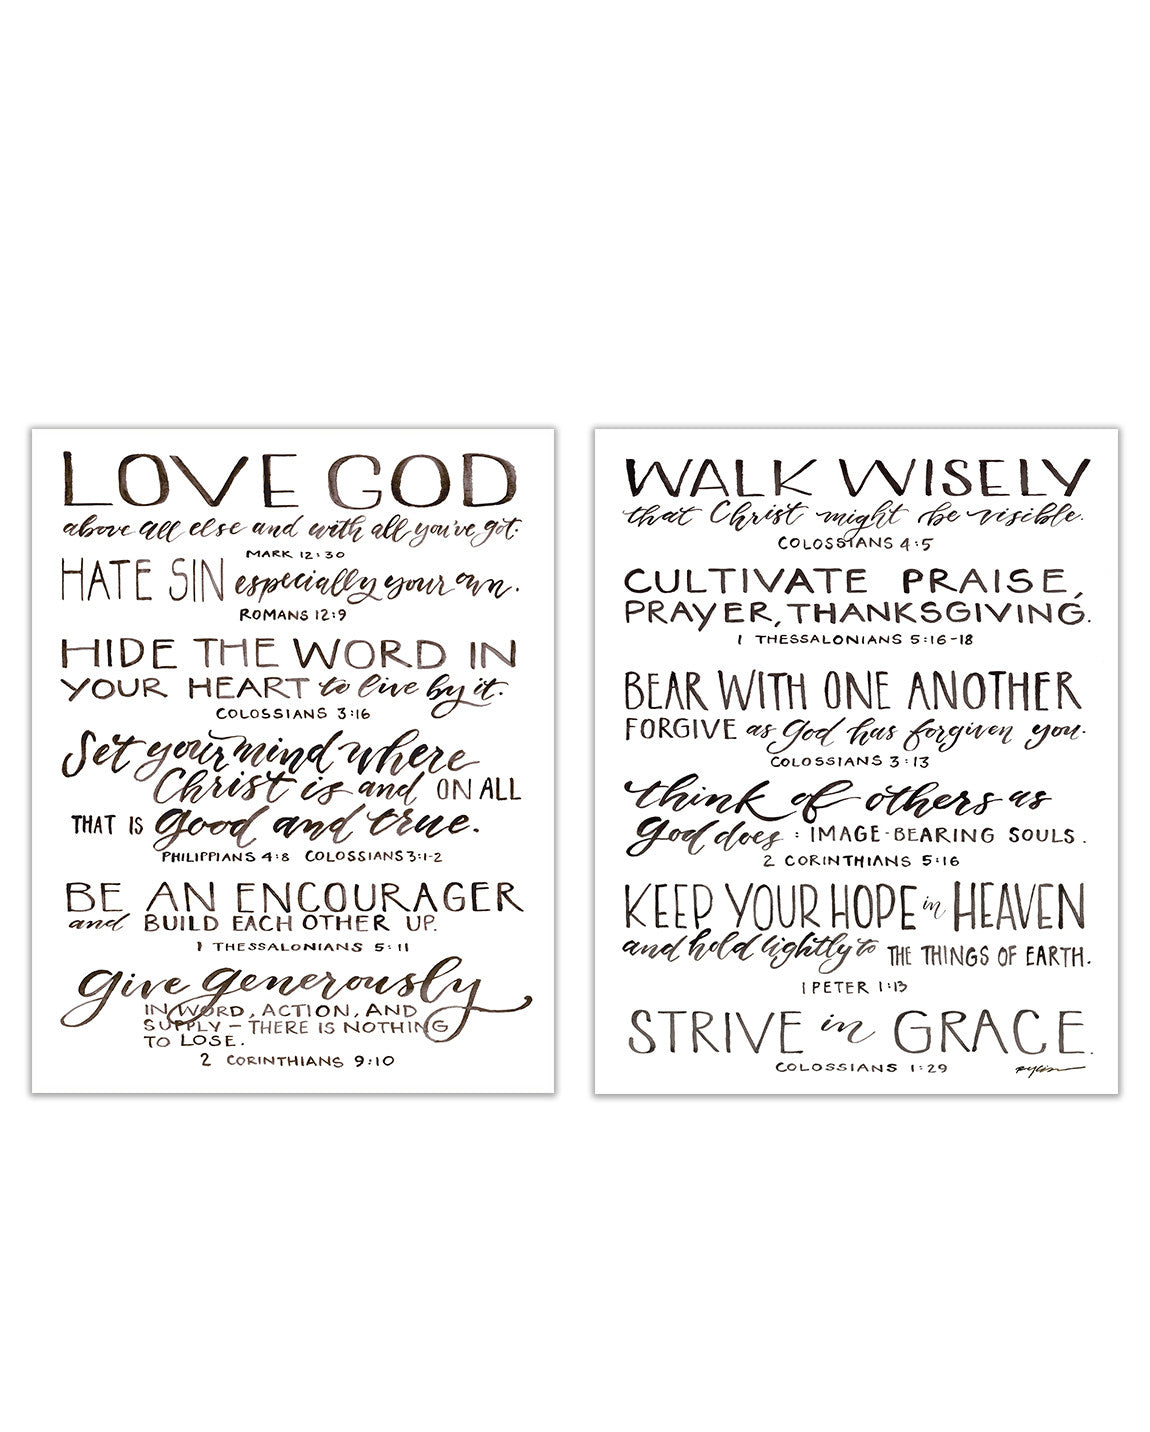 LOVE GOD
above all else and with all you've got.
MARK 12:30
HATE SIN especially your own.
ROMANS 12:9
HIDE THE WORD IN
YOUR HEART to live by it.
COLOSSIANS 3:16
Set your mind where
Christ is and ON ALL
THAT IS good and true.
PHILIPPIANS 4:8 COLOSSIANS 3:1-2
BE AN ENCOURAGER
and BUILD EACH OTHER UP.
1 THESSALONIANS 5:11
give generously
IN WORD, ACTION, AND
SUPPLY — THERE IS NOTHING
TO LOSE.
2 CORINTHIANS 9:10
WALK WISELY
that Christ might be visible.
COLOSSIANS 4:5
CULTIVATE PRAISE,
PRAYER, THANKSGIVING.
1 THESSALONIANS 5:16-18
BEAR WITH ONE ANOTHER
FORGIVE as God has forgiven you.
COLOSSIANS 3:13
think of others as
God does: IMAGE-BEARING SOULS.
2 CORINTHIANS 5:16
KEEP YOUR HOPE in HEAVEN
and hold lightly to THE THINGS OF EARTH.
1 PETER 1:13
STRIVE in GRACE.
COLOSSIANS 1:29